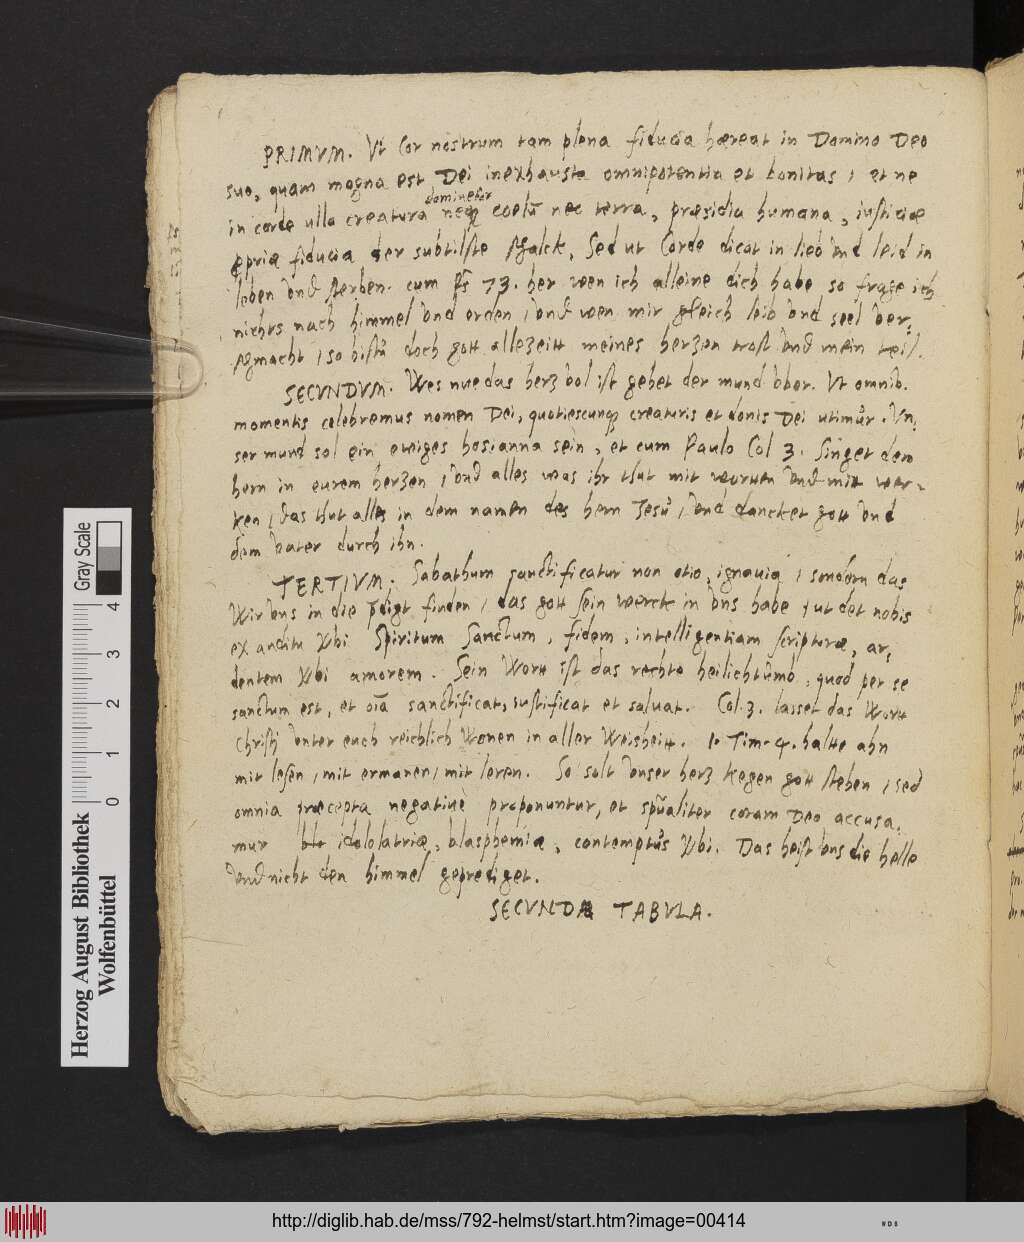 PRIMVM. Vt Cor nostrum tam plena fiducia hæreat in Domino Deo
suo, quam magna est Dei inexhausta omnipotentia et bonitas, et ne
dominetur
in corde ulla creatura neq; coelū nec terra, præsidia humana, iusticiæ
ꝓpriæ fiducia der subtilste schalck, Sed ut Corde dicat in lieb vnd leid in
leben vnd sterben. cum Ps 73. her wen ich alleine dich habe so frage ich
nichts nach himmel vnd erden, vnd wen mir gleich leib vnd seel ver,
schmacht, so bistu doch gott allezeitt meines herzen trost vnd mein teil.
SECVNDVM. Wes nue das herz vol ist gehet der mund vber. Vt omnib.
momentis celebremus nomen Dei, quotiescunq; creaturis et donis Dei utimur. Vn,
ser mund sol ein ewiges hosianna sein, et cum Paulo Col 3. Singet dem
hern in eurem herzen, vnd alles was ihr thut mit worten vnd mitt wer-
ken, das thut alles in dem namen des hern Jesu, vnd dancket gott vnd
dem Vater durch ihn.
TERTIVM. Sabathum sanctificatur non otio, ignauia, sondern das
Wir vns in die pdigt finden, das gott sein werck in vns habe, ut det nobis
ex auditu Vbi Spiritum Sanctum, fidem, intelligentiam scripturæ, ar,
dentem Vbi amorem. Sein Wortt ist das rechte heilichtumb, quod per se
sanctum est, et oīa sanctificat, iustificat et saluat. Col. 3. lasset das Wortt
Christj vnter euch reichlich Wonen in aller Weisheitt. 1. Tim. 4. halte ahn
mit lesen, mit ermanen, mit leren. So solt vnser herz kegen gott stehen, sed
omnia præcepta negatiue proponuntur, et spūaliter coram Deo accusa,
mur idololatriæ, blasphemiæ, contemptus Vbi. Das heist vns die helle
vnd nicht den himmel geprediget.
SECVNDA TABVLA.
Herzog August Bibliothek
Wolfenbüttel
Gray Scale
0 1 2 3 4
http://diglib.hab.de/mss/792-helmst/start.htm?image=00414